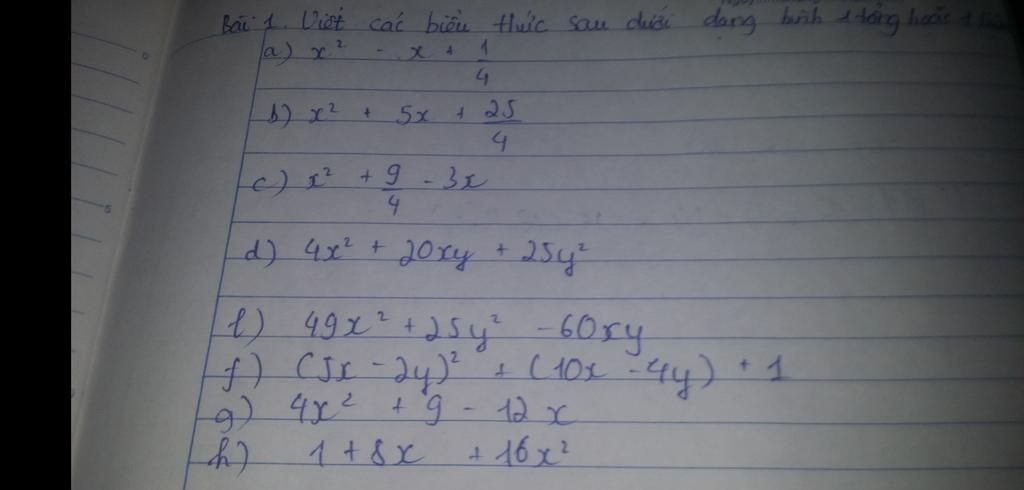 Bài 1. Viết các biểu thức sau dưới dạng bình 1 tổng hoặc 1
a) x² - x + 1/4
b) x² + 5x + 25/4
c) x² + 9/4 - 3x
d) 4x² + 20xy + 25y²
e) 49x² + 25y² - 60xy
f) (5x - 2y)² + (10x - 4y) + 1
g) 4x² + 9 - 12x
h) 1 + 8x + 16x²